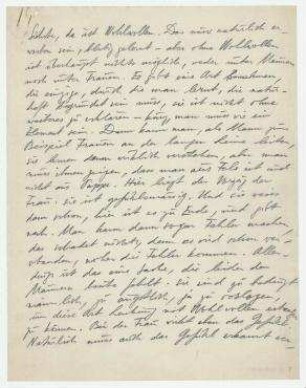 Liebe, da ist Wohlwollen. Das muss natürlich er-
worben sein, Stück gelernt - aber ohne Wohlwollen
ist überhaupt nichts möglich, weder unter Männern
noch unter Frauen. Es gibt eine Art
die einzige, durch die man lernt, die
haft begründet sein muss, sie ist nicht ohne
weiteres zu erklären - man muss wie ein
Element sein. Dann kann man, als Mann zum
Beispiel Frauen an der langen Leine leiten,
sie lernen dann wirklich verstehen, aber man
muss ihnen zeigen, dass man aus Fels ist und
nicht aus Pappe. Hier liegt der Vorzug der
Frau: sie ist gefühlsmässig. Und sie weiss
dann schon, hier ist es zu Ende, und gibt
nach. Man kann dann sogar Fehler machen,
das schadet nichts, denn es wird schon ver-
standen, woher die Fehler kommen. Aller-
dings ist das eine Sache, die leider den
Männern heute fehlt. Sie sind zu
männlich, zu ängstlich, ja zu verlogen,
um diese Art Leitung mit Wohlwollen
zu können. Bei der Frau reicht eben das Gefühl
Natürlich muss auch das Gefühl erkannt